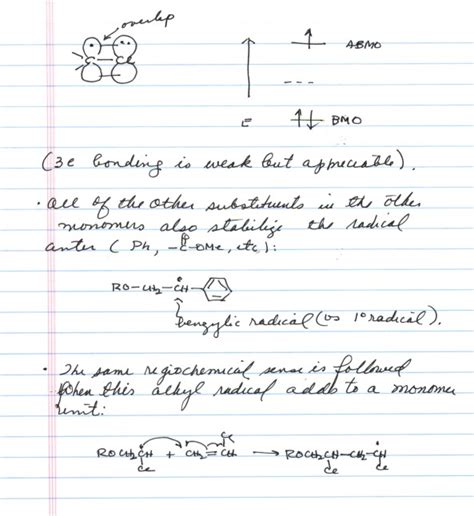 overlap
C — Cl
ABMO
E
BMO
(3e bonding is weak but appreciable).
• all of the other substituents in the other
monomers also stabilize the radical
(Ph, -C-OMe, etc):
RO-CH2-CH-
benzylic radical (vs 1° radical).
• The same regiochemical sense is followed
when this alkyl radical adds to a monomer
unit:
ROCH2CH + CH2=CH → ROCH2CH-CH2-CH